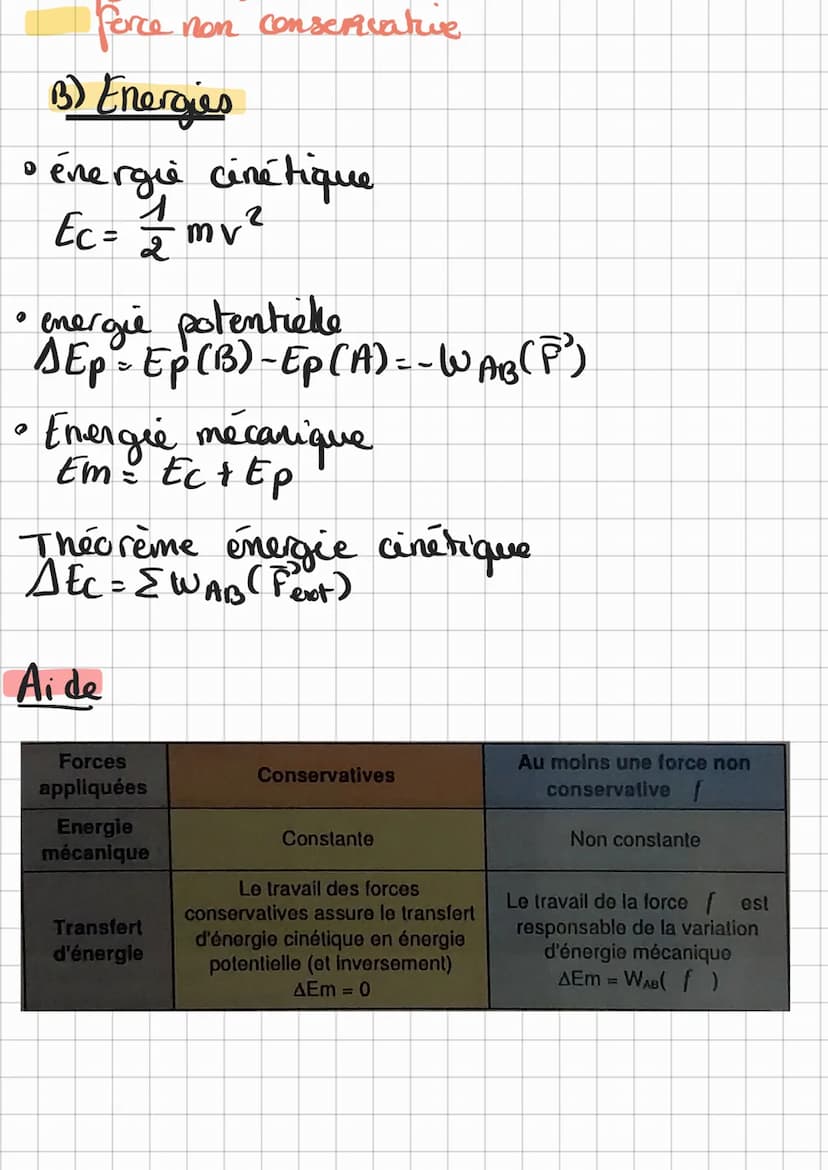 force non conservative
B) Energies
• énergie cinétique
Ec = 1/2 mv²
• energie potentielle
ΔEp = Ep(B) - Ep(A) = - W AB(P⃗)
• Energie mécanique
Em = Ec + Ep
Théorème énergie cinétique
ΔEc = Σ W AB(F⃗ext)
Aide
Forces appliquées
Conservatives
Au moins une force non conservative f
Energie mécanique
Constante
Non constante
Transfert d'énergie
Le travail des forces
conservatives assure le transfert
d'énergie cinétique en énergie
potentielle (et inversement)
ΔEm = 0
Le travail de la force f est
responsable de la variation
d'énergie mécanique
ΔEm = WAB( f )